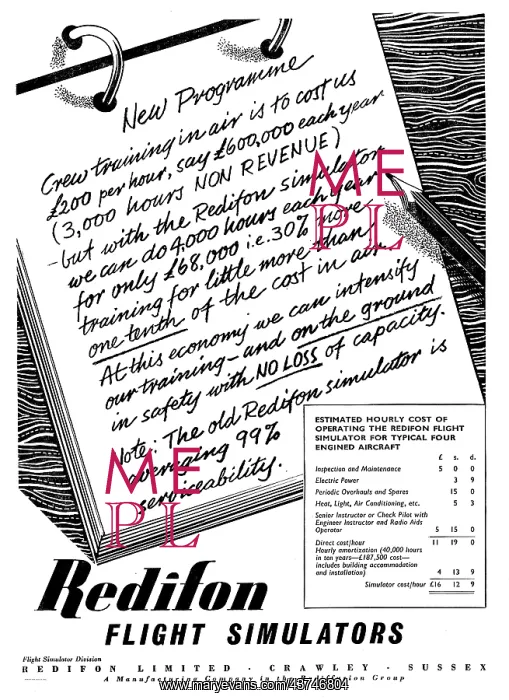 New Programme
Crew training in air is to cost us
£200 per hour, say £600,000 each year
(3,000 hours NON REVENUE)
-but with the Redifon simulator
we can do 4,000 hours each year
for only £68,000 i.e. 30% more
training for little more than
one tenth of the cost in air.
At this economy we can intensify
our training - and on the ground
in safety with NO LOSS of capacity.
Note: The old Redifon simulator is
averaging 99%
serviceability.
ME
PL
ME
PL
ESTIMATED HOURLY COST OF
OPERATING THE REDIFON FLIGHT
SIMULATOR FOR TYPICAL FOUR
ENGINED AIRCRAFT
£ s. d.
Inspection and Maintenance 5 0 0
Electric Power 3 9
Periodic Overhauls and Spares 15 0
Heat, Light, Air Conditioning, etc. 5 3
Senior Instructor or Check Pilot with
Engineer Instructor and Radio Aids
Operator 5 15 0
Direct cost/hour 11 19 0
Hourly amortization (40,000 hours
in ten years—£187,500 cost—
includes building accommodation
and installation) 4 13 9
Simulator cost/hour £16 12 9
Redifon
FLIGHT SIMULATORS
Flight Simulator Division
REDIFON LIMITED · CRAWLEY · SUSSEX
A Manufacturing Company in the Rediffusion Group
www.maryevans.com/45746804